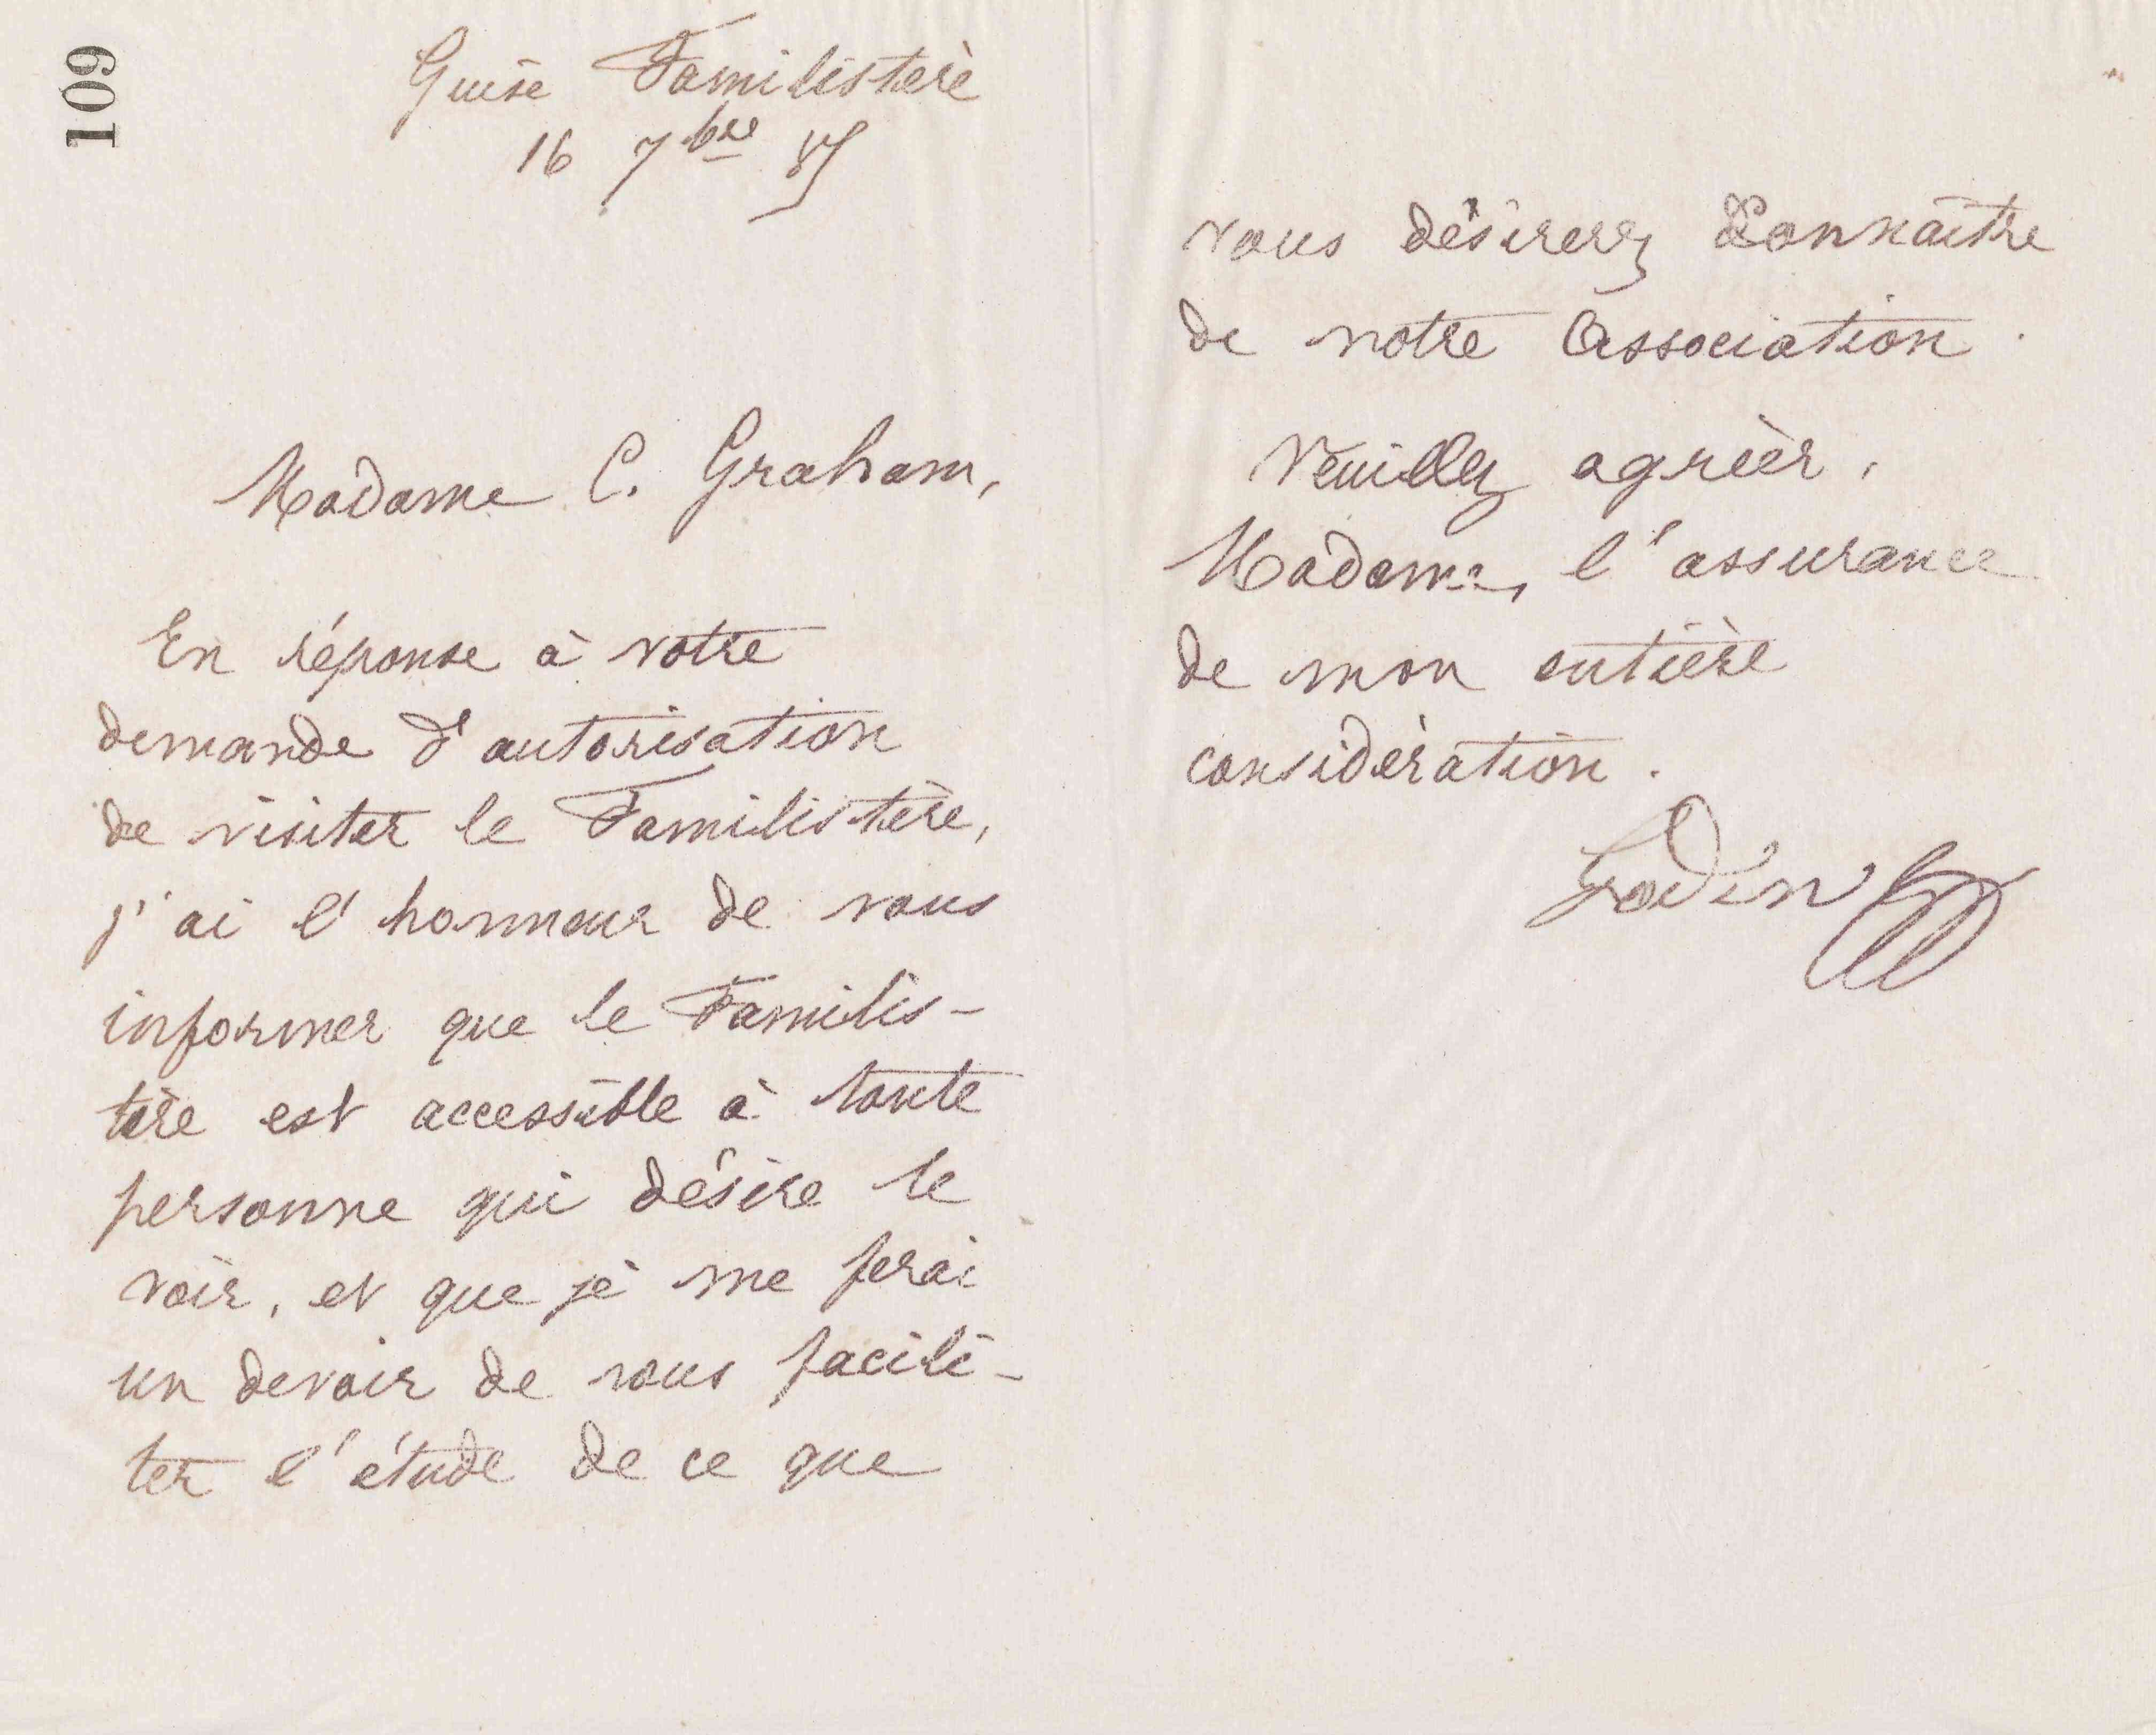 109
Guise Familistère
16 7bre 85
Madame C. Graham,
En réponse à votre
demande d'autorisation
de visiter le Familistère,
j'ai l'honneur de vous
informer que le Familis-
tère est accessible à toute
personne qui désire le
voir, et que je me ferai
un devoir de vous facili-
ter l'étude de ce que
vous désirerez connaître
de notre Association.
Veuillez agréer,
Madame, l'assurance
de mon entière
considération.
Godin